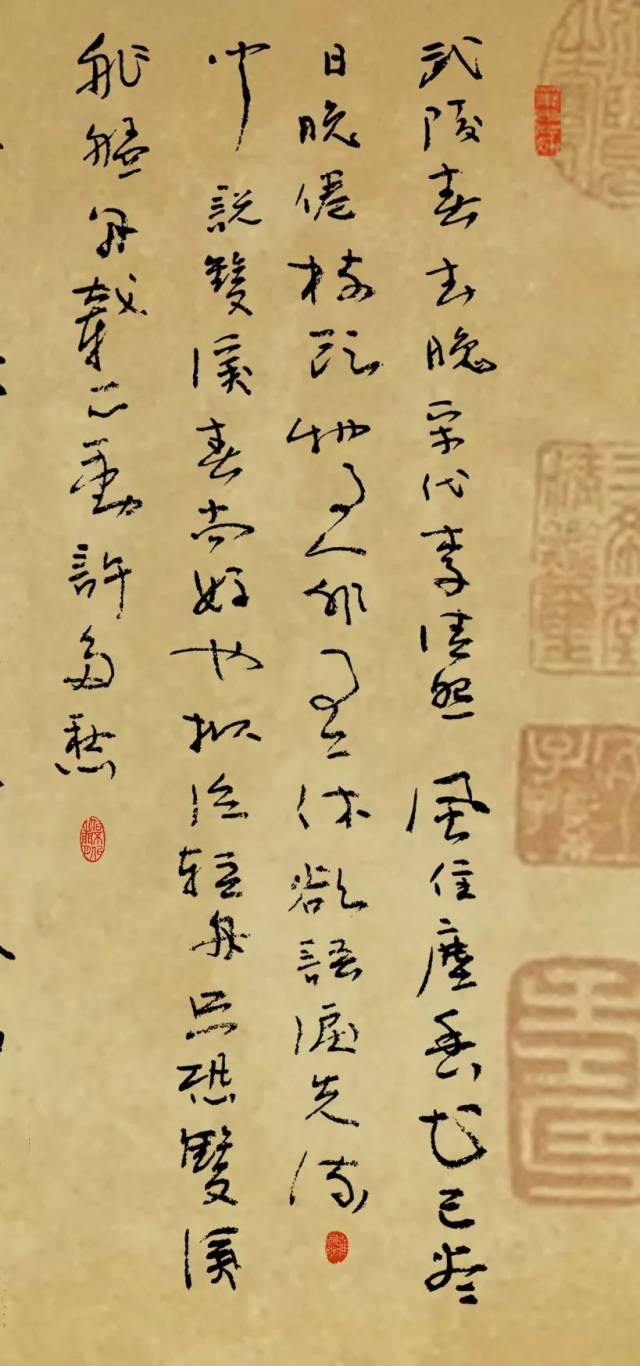 武陵春春晚宋代李清照 風住塵香花已盡
日晚倦梳頭物是人非事事休欲語淚先流
聞說雙溪春尚好也擬泛輕舟只恐雙溪
舴艋舟載不動許多愁